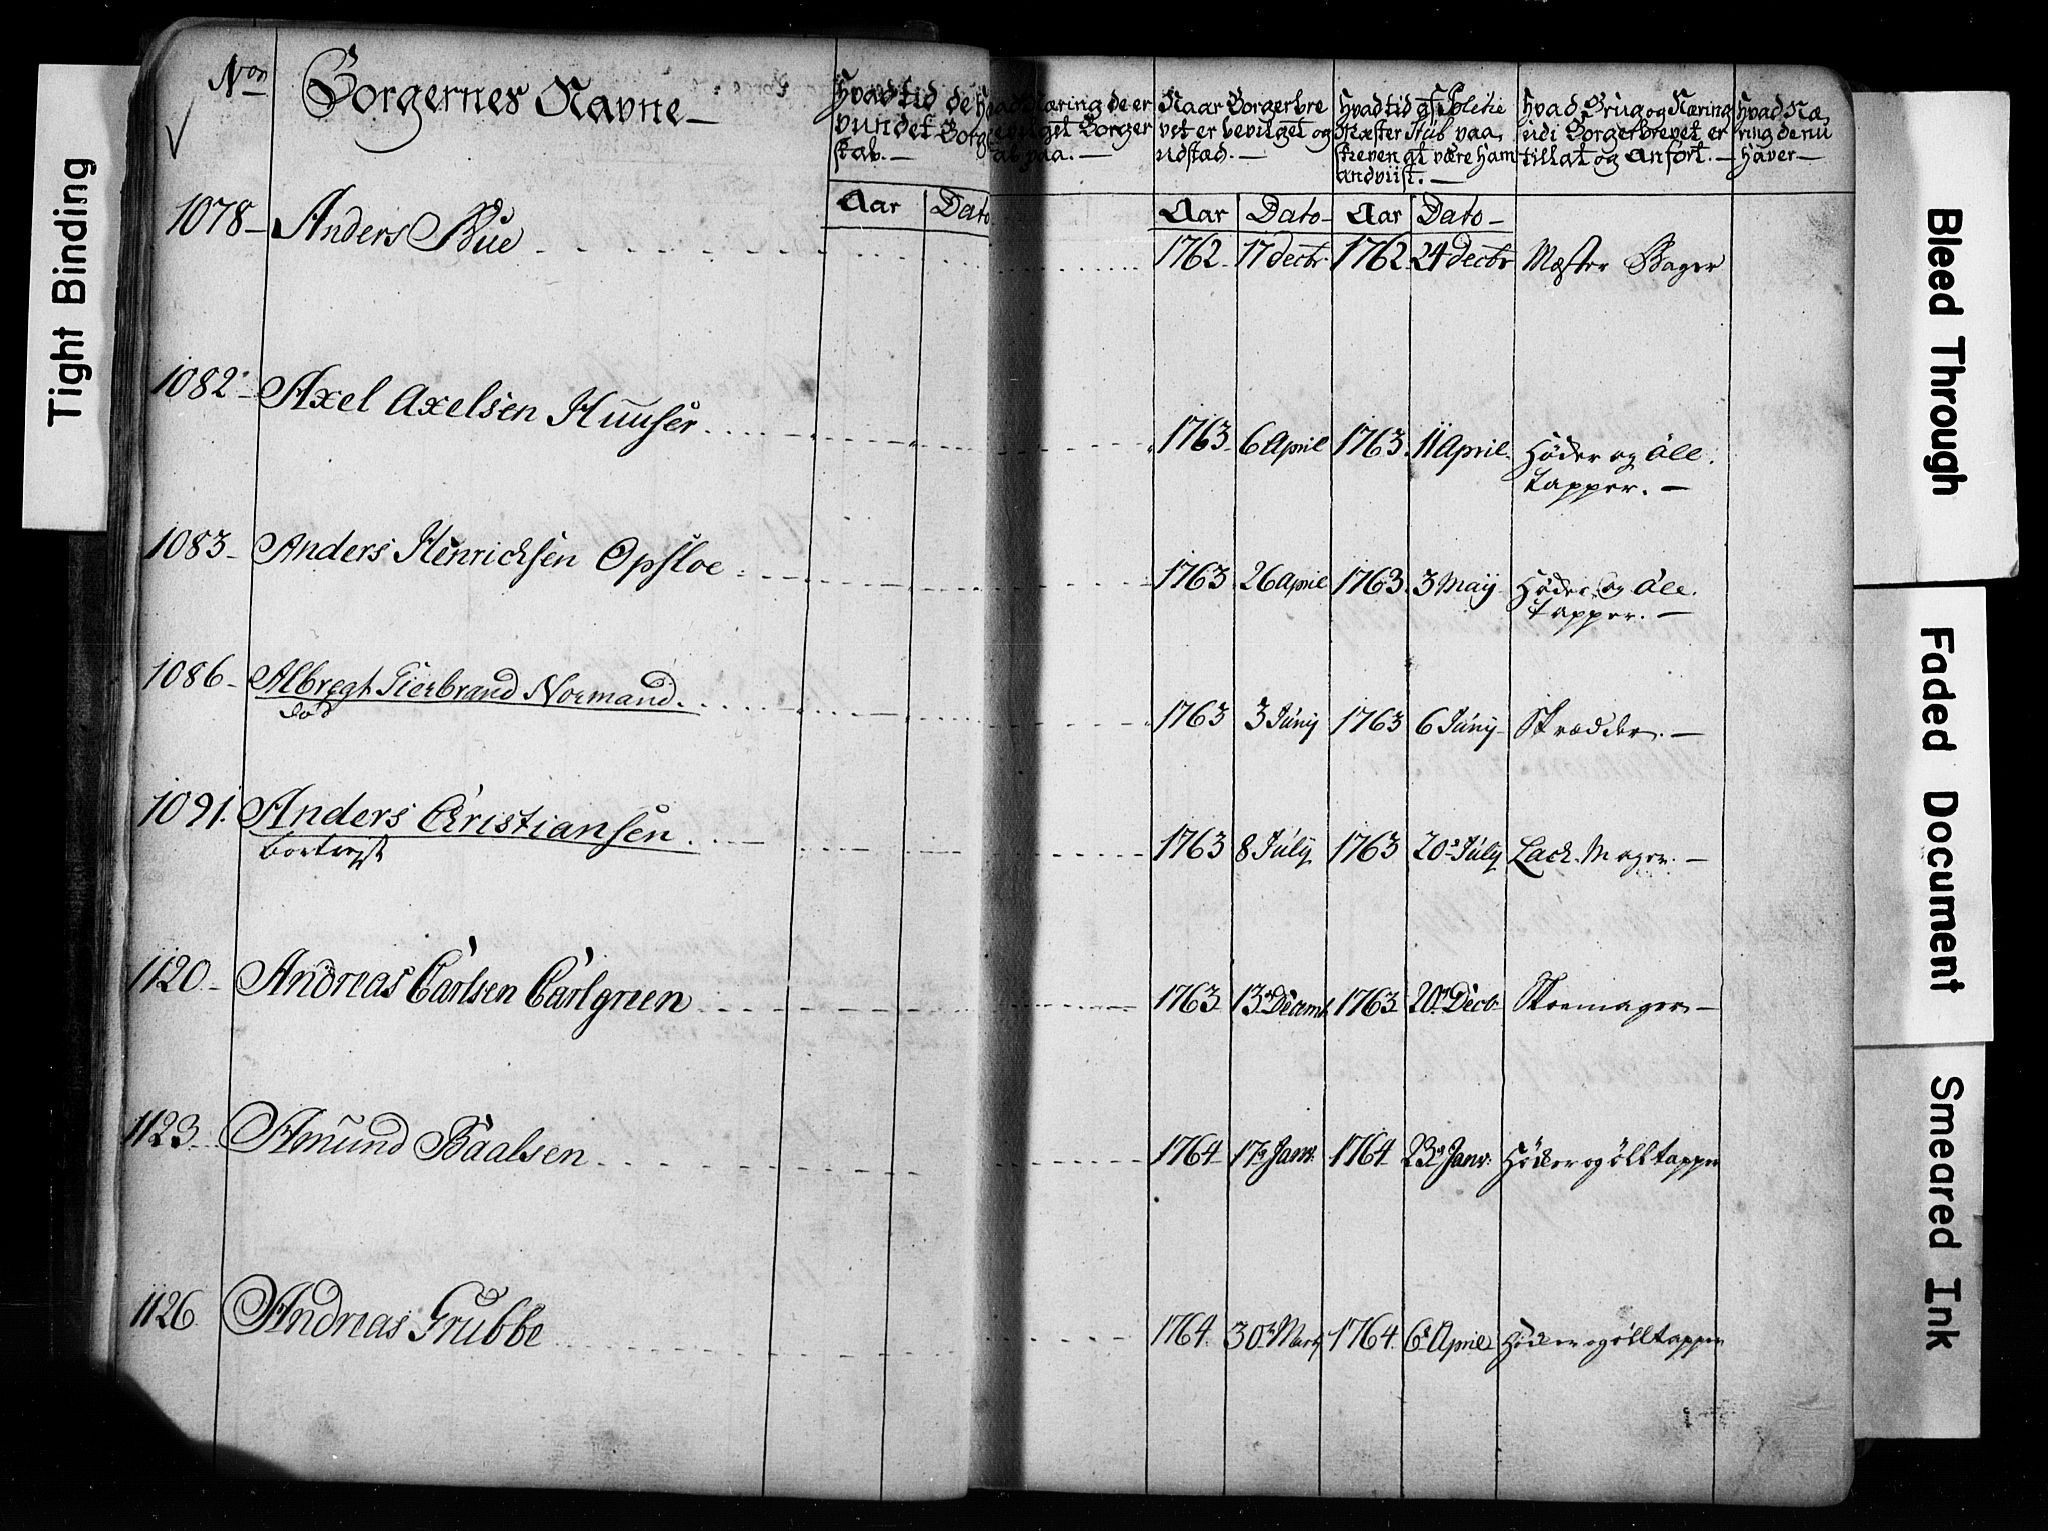 Tight Binding
Bleed Through
Faded Document
Smeared Ink
Nor Borgernes Navne
Hvad tid de vundet Borgerskab.
Hvad Næring de er bevilget Borgerskab paa.
Naar Borgerbrevet er bevilget og udstæd.
Hvad tid af Politie Mæster Stub paaskreven at være ham andviist.
Hvad Brug og Næring udi Borgerbrevet er tillat og Anfört.
Hvad Næring de nu Haver
Aar Dato Aar Dato Aar Dato
1078 Anders Bue 1762 17 Decbr 1762 24 Decbr Mester Bager
1082 Axel Axelsen Huuser 1763 6 April 1763 11 April Höcker og Öll
tapper.
1083 Anders Henrichsen Opsloe 1763 26 April 1763 3 Maij Höcker og Öll
tapper.
1086 Albregt Gierbrand Normand. 1763 3 Junij 1763 6 Junij Skrædder.
död
1091. Anders Christiansen. 1763 8 Julij 1763 20 Julij Lack Mager.
bortrejst
1120. Andreas Carlsen Carlgrien 1763 13 Decemb. 1763 20 Decb. Skoemager
1123. Amund Baalsen 1764 17 Janv. 1764 23 Janv. Höcker og ölltapper
1126. Andreas Grubbe 1764. 30 Martj 1764. 6 April Höcker og ölltapper